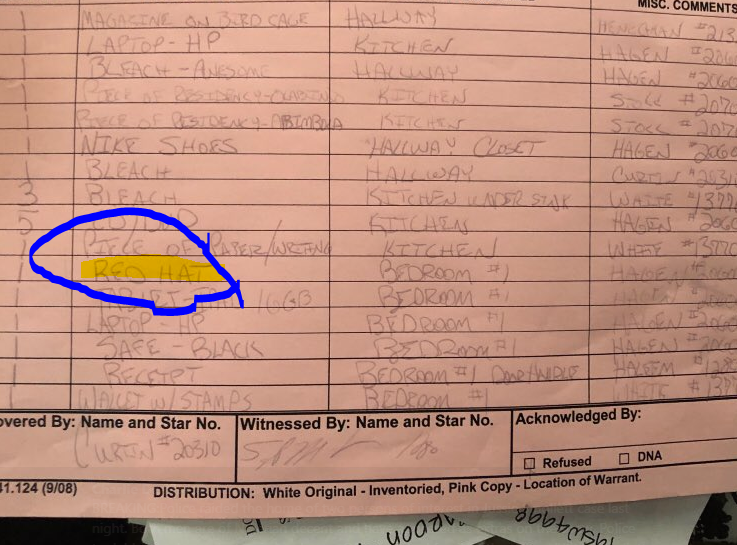 MISC. COMMENTS
1 MAGAZINE ON BIRD CAGE HALLWAY HENEGHAN #213
1 LAPTOP - HP KITCHEN HAGEN #2060
1 BLEACH - AWESOME HALLWAY HAGEN #2060
1 PIECE OF RESIDENCY- KITCHEN STOLL #2070
1 PIECE OF RESIDENCY-ABIMBOLA KITCHEN STOLL #2070
1 NIKE SHOES HALLWAY CLOSET HAGEN #2060
1 BLEACH HALLWAY CURTIN #2031
3 BLEACH KITCHEN UNDER SINK WHITE #1377
5 CD/DVD KITCHEN HAGEN #2060
1 PIECE OF PAPER/WRITING KITCHEN WHITE #13770
1 RED HAT BEDROOM #1 HAGEN
1 TABLET 16GB BEDROOM #1 HAGEN
1 LAPTOP - HP BEDROOM #1 HAGEN #2060
1 SAFE - BLACK BEDROOM #1 HAGEN #2060
1 RECEIPT BEDROOM #1 DOOR HANDLE
1 WALLET W/ STAMPS BEDROOM #1 WHITE #1377
overed By: Name and Star No. Witnessed By: Name and Star No. Acknowledged By:
CURTIN #20310
Refused DNA
41.124 (9/08) DISTRIBUTION: White Original - Inventoried, Pink Copy - Location of Warrant.